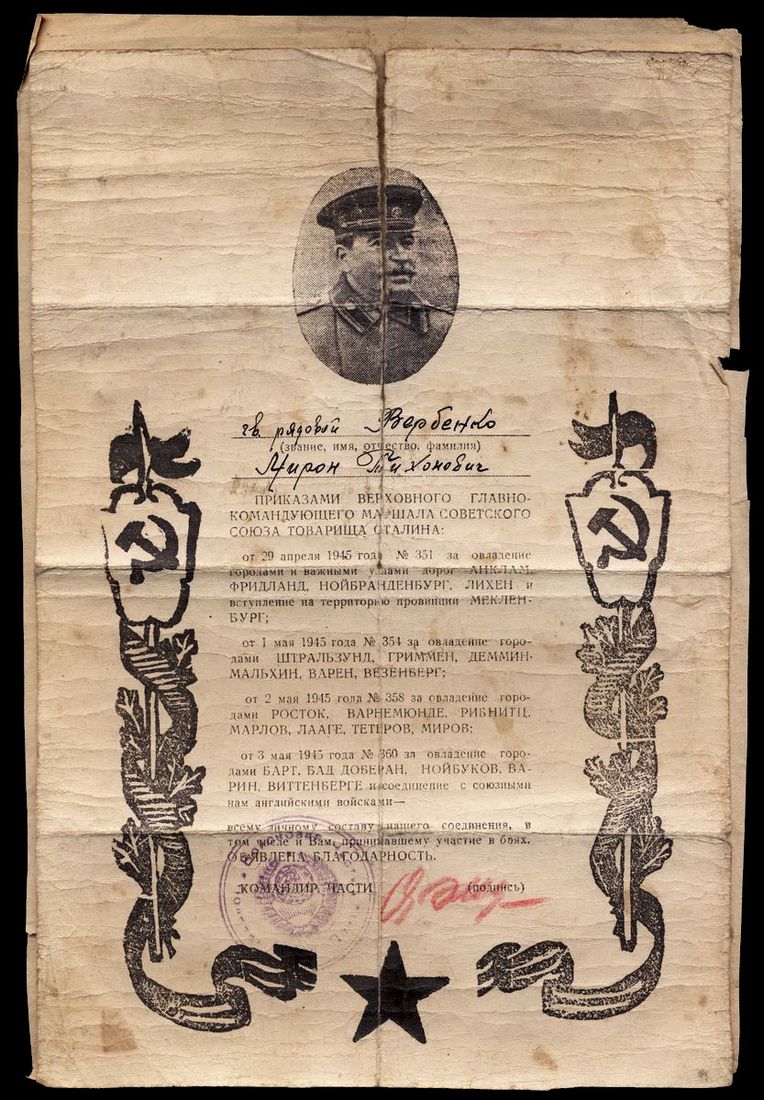 гв. рядовой Вербенко
(звание, имя, отчество, фамилия)
Мирон Тихонович
ПРИКАЗАМИ ВЕРХОВНОГО ГЛАВНО-
КОМАНДУЮЩЕГО МАРШАЛА СОВЕТСКОГО
СОЮЗА ТОВАРИЩА СТАЛИНА:
от 29 апреля 1945 года № 351 за овладение
городами и важными узлами дорог АНКЛАМ,
ФРИДЛАНД, НОЙБРАНДЕНБУРГ, ЛИХЕН и
вступление на территорию провинции МЕКЛЕН-
БУРГ;
от 1 мая 1945 года № 354 за овладение горо-
дами ШТРАЛЬЗУНД, ГРИММЕН, ДЕММИН,
МАЛЬХИН, ВАРЕН, ВЕЗЕНБЕРГ;
от 2 мая 1945 года № 358 за овладение горо-
дами РОСТОК, ВАРНЕМЮНДЕ, РИБНИТЦ,
МАРЛОВ, ЛААГЕ, ТЕТЕРОВ, МИРОВ;
от 3 мая 1945 года № 360 за овладение горо-
дами БАРТ, БАД ДОБЕРАН, НОЙБУКОВ, ВА-
РИН, ВИТТЕНБЕРГЕ и соединение с союзными
нам английскими войсками—
всему личному составу нашего соединения, в
том числе и Вам, принимавшему участие в боях,
ОБЪЯВЛЕНА БЛАГОДАРНОСТЬ.
КОМАНДИР ЧАСТИ (подпись)